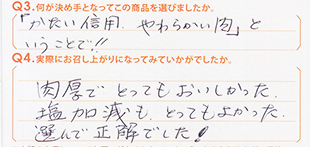 Q3.何が決め手となってこの商品を選びましたか。
「かたい信用、やわらかい肉」と
いうことで!!
Q4.実際にお召し上がりになってみていかがでしたか。
肉厚でとってもおいしかった。
塩加減も、とってもよかった。
選んで正解でした!